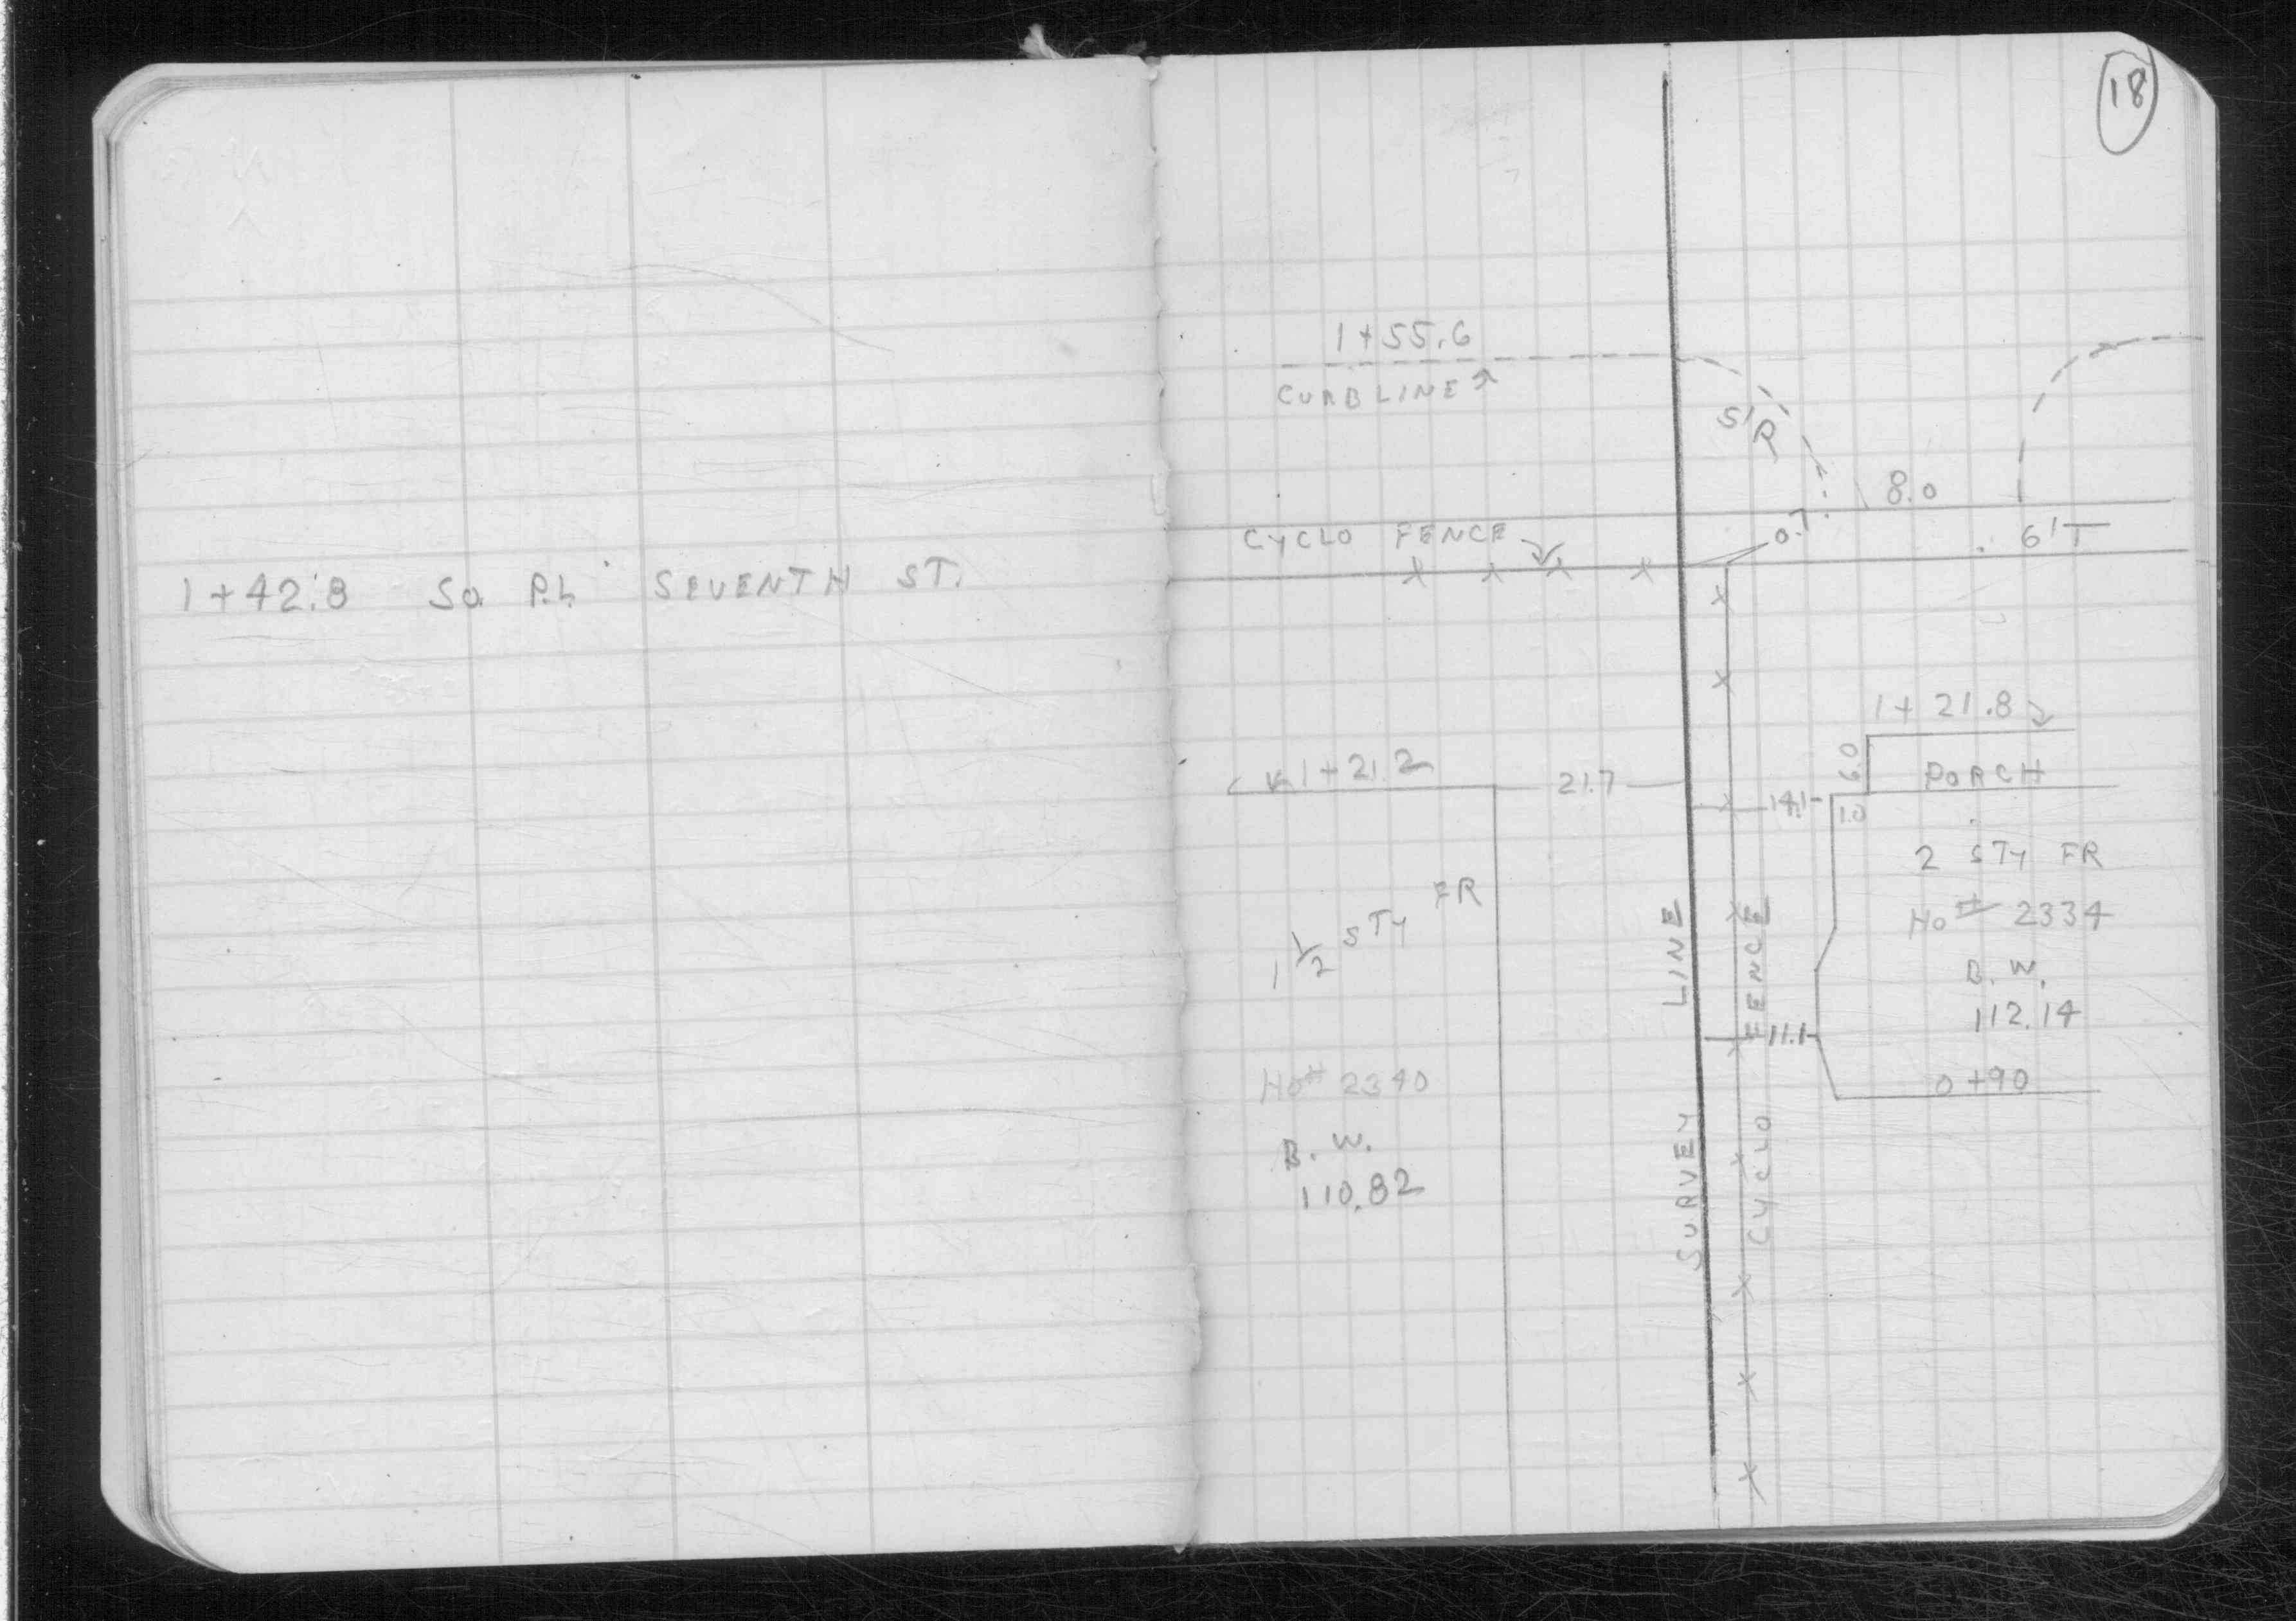 18
1+42.8 So. P.L. SEVENTH ST.
1+55.6
CURB LINE
5'R
8.0
CYCLO FENCE
0.7
6'T
1+21.8
6.0
PORCH
1+21.2
21.7
14.1
1.0
2 STY FR
Ho # 2334
B. W.
112.14
0+90
1 1/2 STY FR
11.1
Ho # 2340
B. W.
110.82
SURVEY LINE
CYCLO FENCE